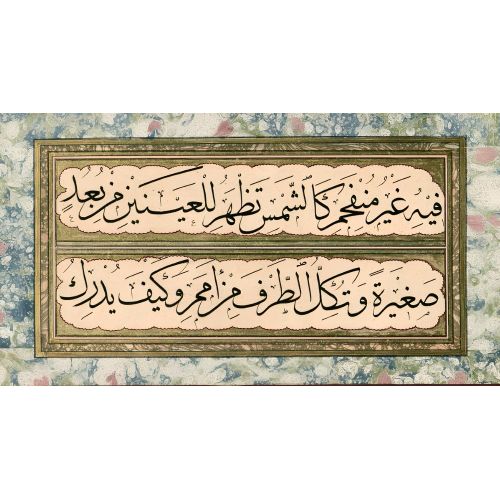 فِيهِ غَيْرُ مُنْفَحِمٍ كَالشَّمْسِ تَظْهَرُ لِلْعَيْنَيْنِ مِنْ بُعُدٍ
صَغِيرَةً وَتُكِلُّ الطَّرْفَ مِنْ أَمَمٍ وَكَيْفَ يُدْرِكُ